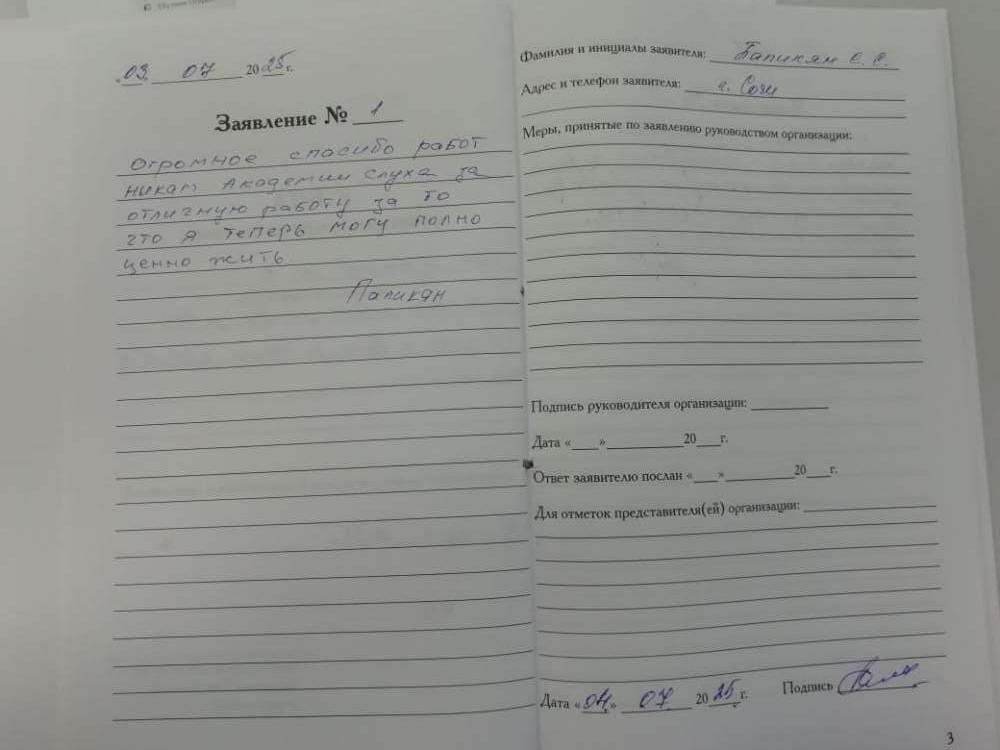 «03» 07 2025 г.
Заявление № 1
Огромное спасибо работ
никам Академии Слуха за
отличную работу за то
что я теперь могу полно
ценно жить
Папикян
Фамилия и инициалы заявителя: Папикян С. С.
Адрес и телефон заявителя: г. Сочи
Меры, принятые по заявлению руководством организации:
Подпись руководителя организации:
Дата «___» 20___г.
Ответ заявителю послан «___» 20___г.
Для отметок представителя(ей) организации:
Дата «04» 07 2025 г. Подпись
3